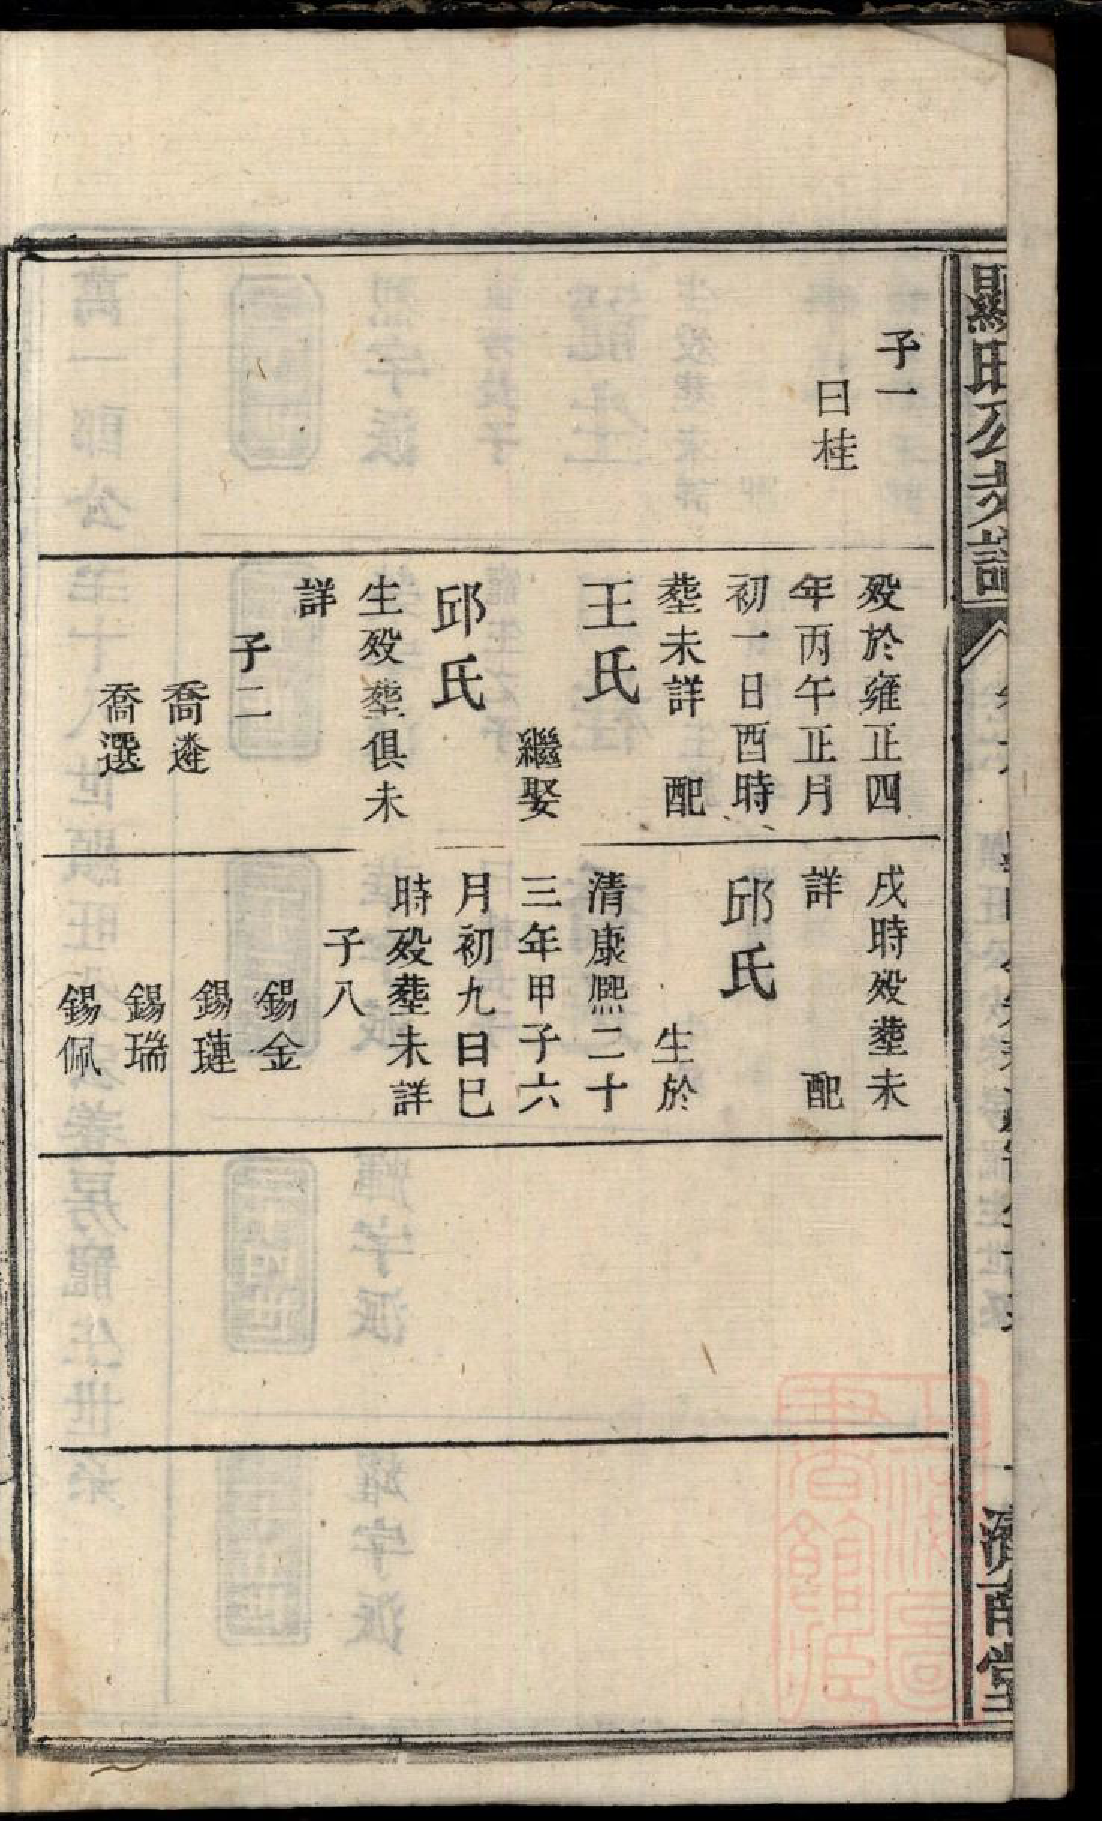 顯旺公支譜
濟南堂
子一
曰桂
歿於雍正四
年丙午正月
初一日酉時
塟未詳 配
王氏
繼娶
邱氏
生歿塟俱未
詳
子二
喬遴
喬選
戌時歿塟未
詳 配
邱氏
生於
清康熙二十
三年甲子六
月初九日巳
時歿塟未詳
子八
錫金
錫璉
錫瑞
錫佩